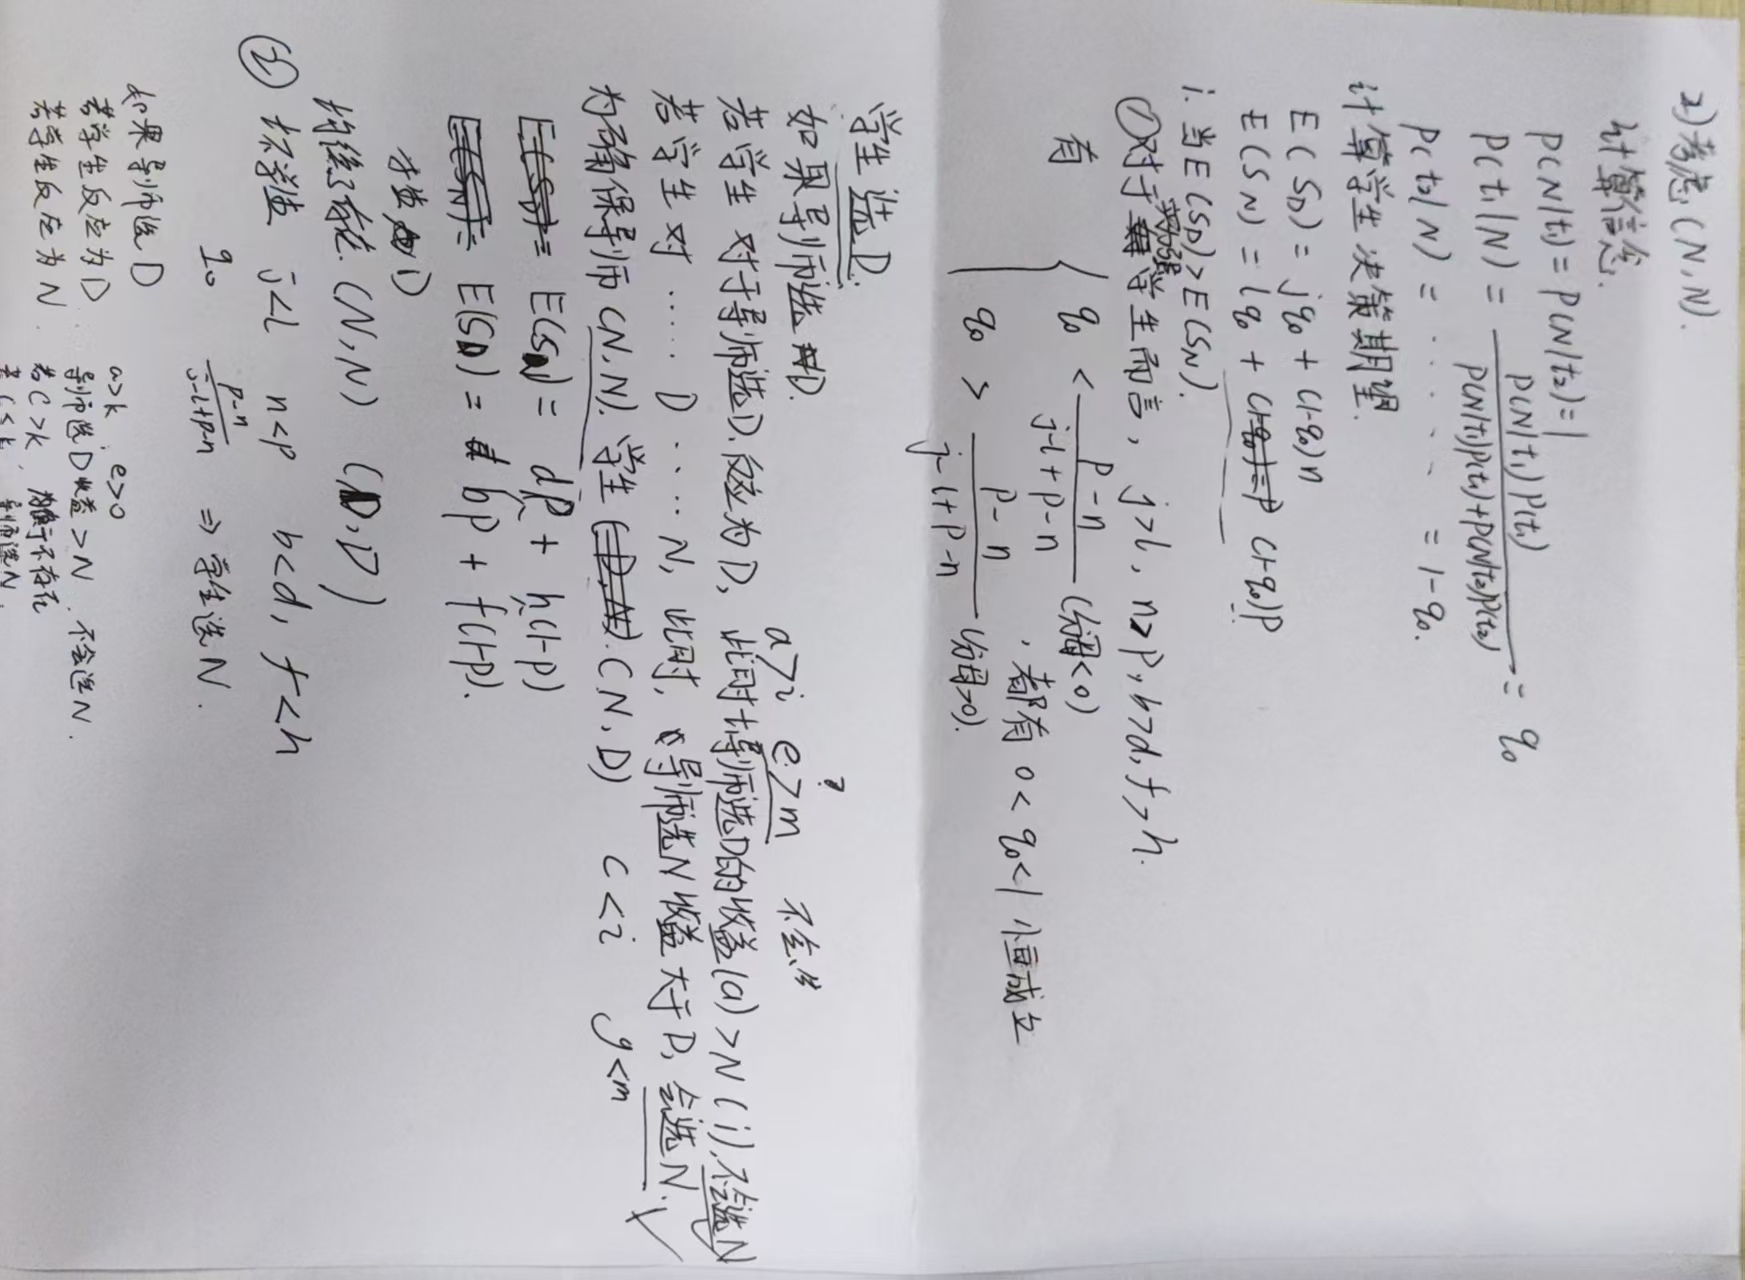 2)考虑(N,N).
计算信念.
P(N|t₁)=P(N|t₂)=1
P(t₁|N) = P(N|t₁)P(t₁) / P(N|t₁)P(t₁)+P(N|t₂)P(t₂) = q₀
P(t₂|N) = ······ = 1-q₀.
计算学生决策期望.
E(S_D) = jq₀ + (1-q₀)n
E(S_N) = lq₀ + (1-q₀)P
i. 当E(S_D)>E(S_N).
①对于实力强学生而言, j>l, n>p, b>d, f>h.
有 { q₀ < (p-n)/(j-l+p-n) (分母<0)
, 都有 0<q₀<1 恒成立
q₀ > (p-n)/(j-l+p-n) (分母>0).
学生选D.
如果导师选D.
a>i e>m ? 不会
若学生对于导师选D,反应为D, 此时导师选D的收益(a)>N(i),不会选N
若学生对 ····· D ···· N, 此时, 导师选N收益大于D, 会选N. ✓
为确保导师(N,N). 学生(N,D) c<i g<m
E(S_N) = dp + h(1-p)
E(S_D) = bp + f(1-p).
学生 D
均衡存在. (N,N) (D,D)
② 坏学生 j<l n<p b<d, f<h
q₀ (p-n)/(j-l+p-n) ⇒ 学生选N.
如果导师选D
a>k, e>o
若学生反应为D 导师选D收益>N, 不会选N.
若学生反应为N 若c>k, 均衡不存在
若c<k 导师选N.